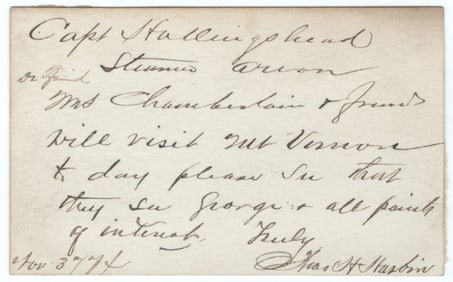 Capt Hollingshead
Steamer Arrow
Mrs Chamberlain & friend
will visit Mt Vernon
to day please see that
they see George & all points
of interest. Truly
Thos H Harbin
Nov 3